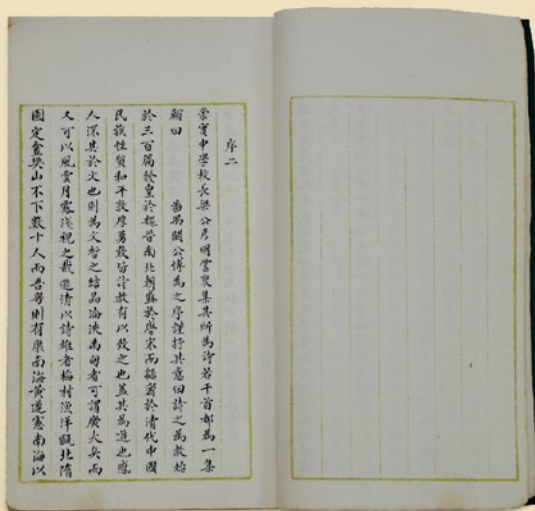 序二
崇實中學校長梁公彥明嘗裒集其所為詩若干首都為一集
顏曰　　番禺關公博為之序謹抒其意曰詩之為教始
於三百篇發皇於魏晉南北朝盛於唐宋而緜衍於清代中國
民族性質和平敦厚勇毅皆詩教有以致之也蓋其為道也感
人深其於文也則為文哲之結晶淪浹為詞者可謂廣大矣而
又可以風雲月露淺視之哉遜清以詩雄者梅村漁洋甌北隨
園定盦樊山不下數十人而吾粵則有康南海黃遵憲南海以